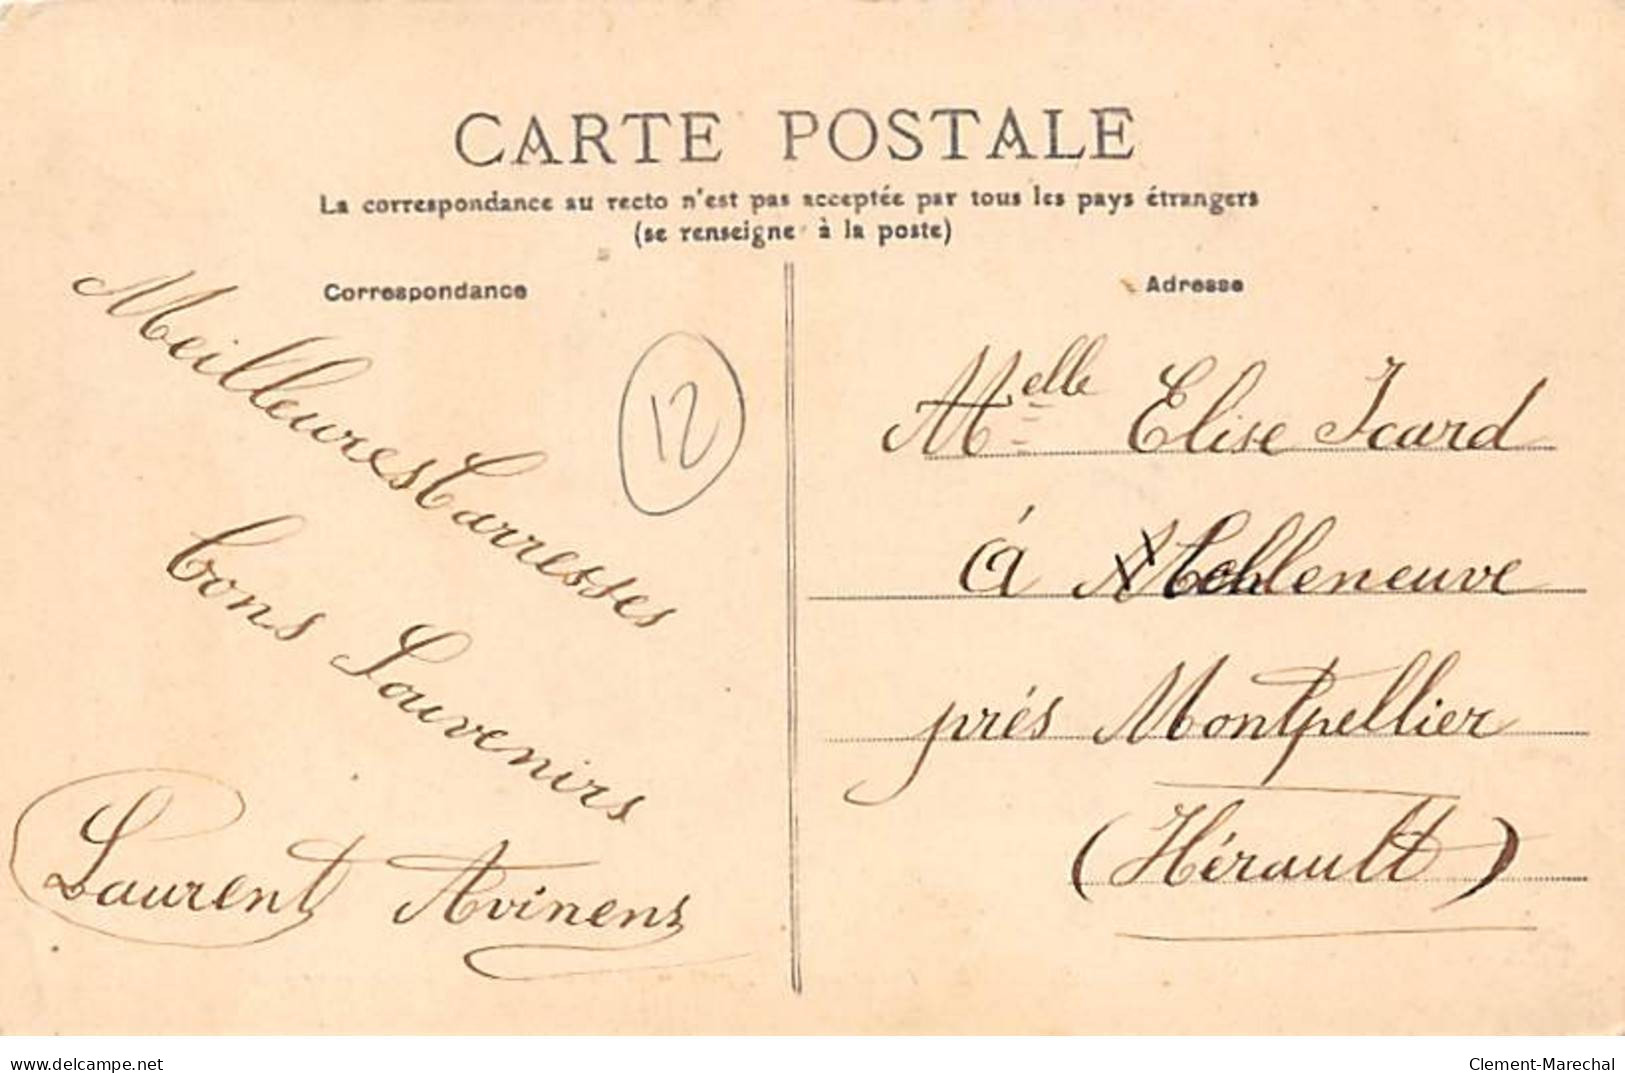 CARTE POSTALE
La correspondance au recto n'est pas acceptée par tous les pays étrangers
(se renseigne à la poste)
Correspondance
Meilleures Carresses
bons Souvenirs
Laurent Avinens
12
Adresse
Melle Elise Icard
à
près Montpellier
(Hérault)
delcampe.net
Clement-Marechal